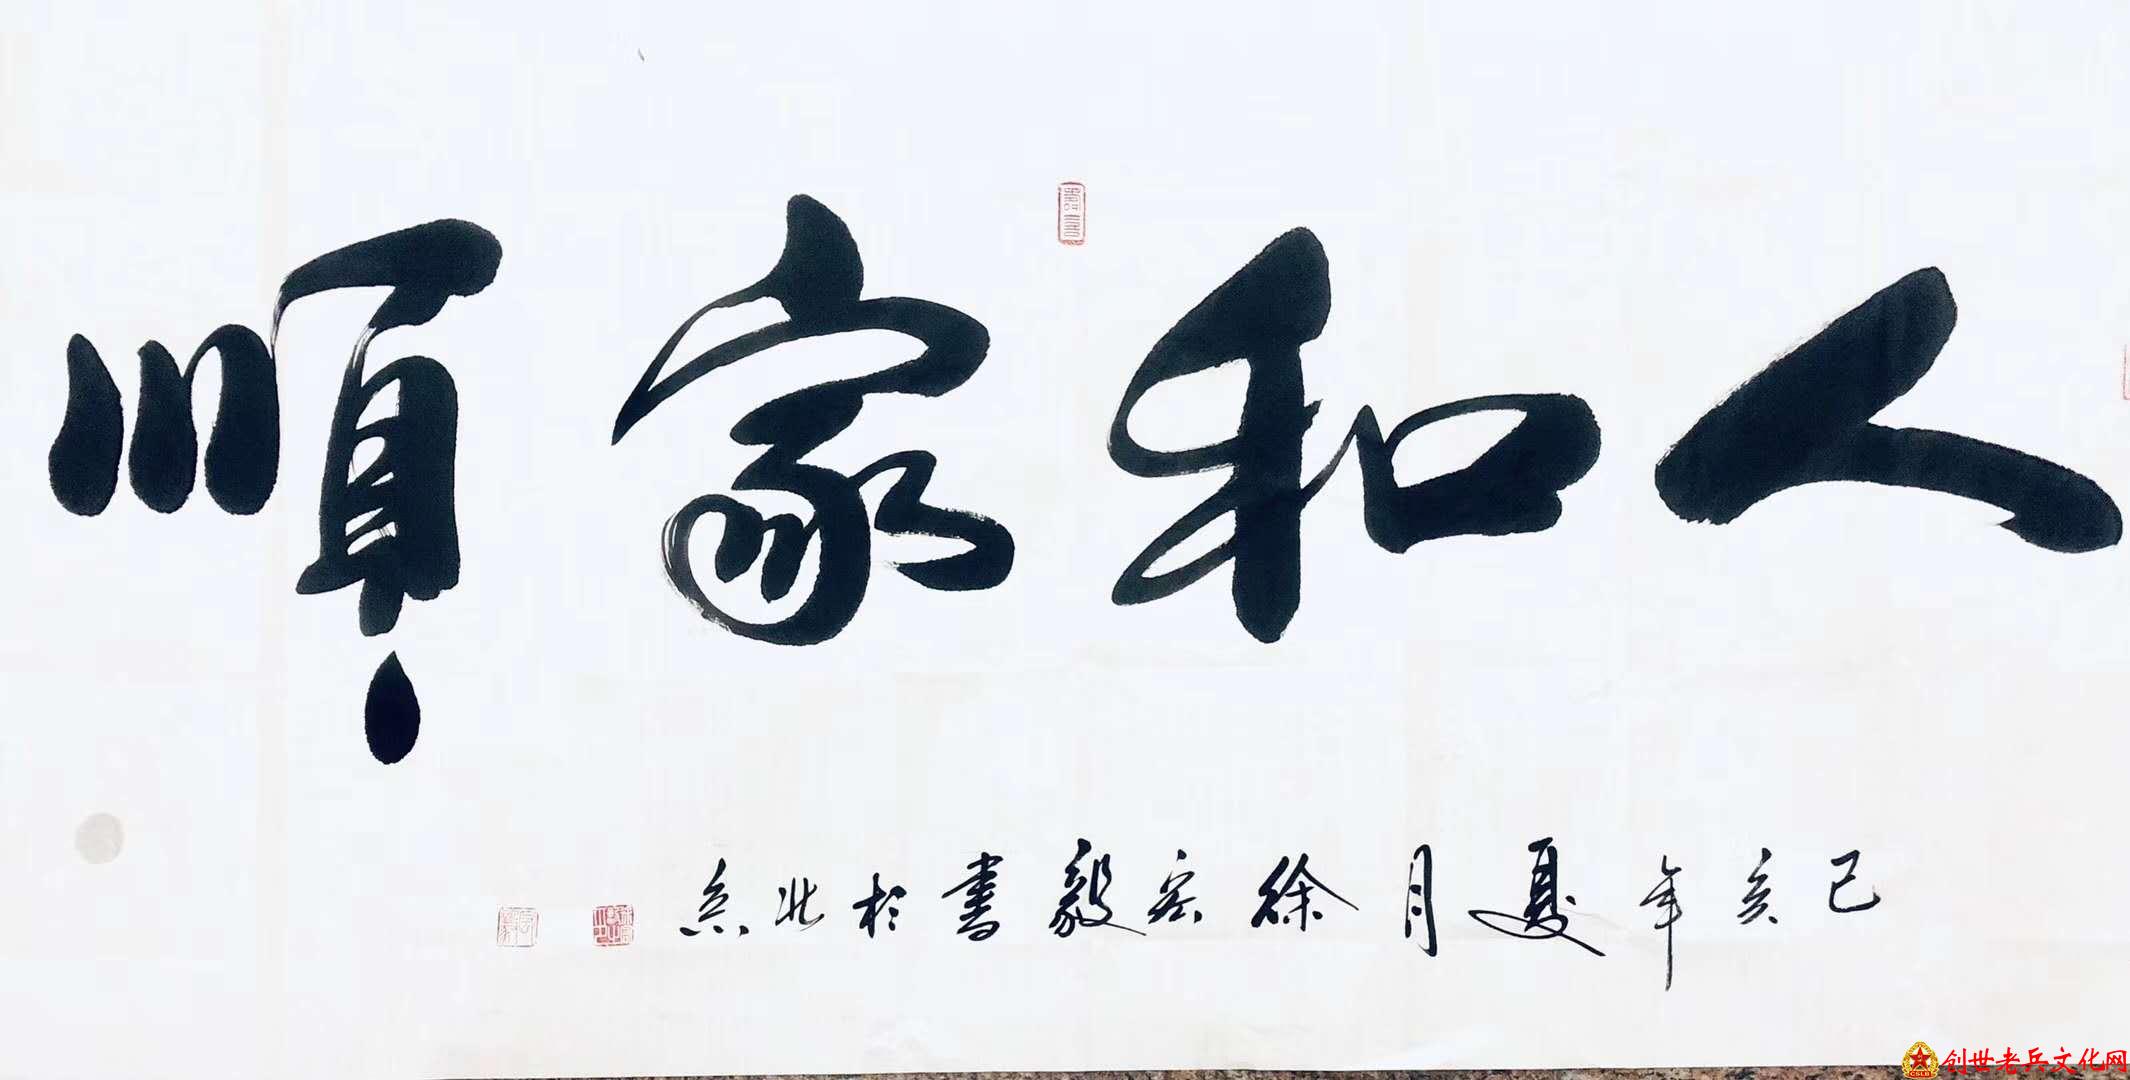 人和家順
己亥年夏月徐宏毅書於北京
创世老兵文化网
CSLB